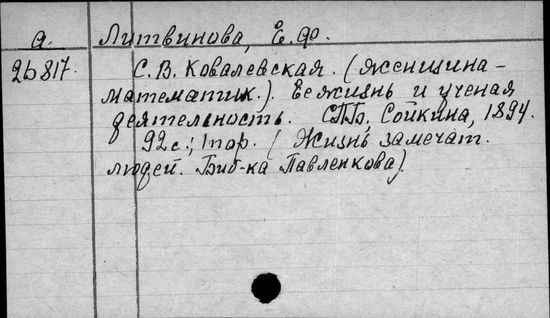 а. Литвинова, Е.Ф.
26817. С. В. Ковалевская. (Женщина-
математик.). Ее жизнь и ученая
деятельность. СПб, Сойкина, 1894.
92с.; 1пор. ( Жизнь замечат.
людей. Биб-ка Павленкова).